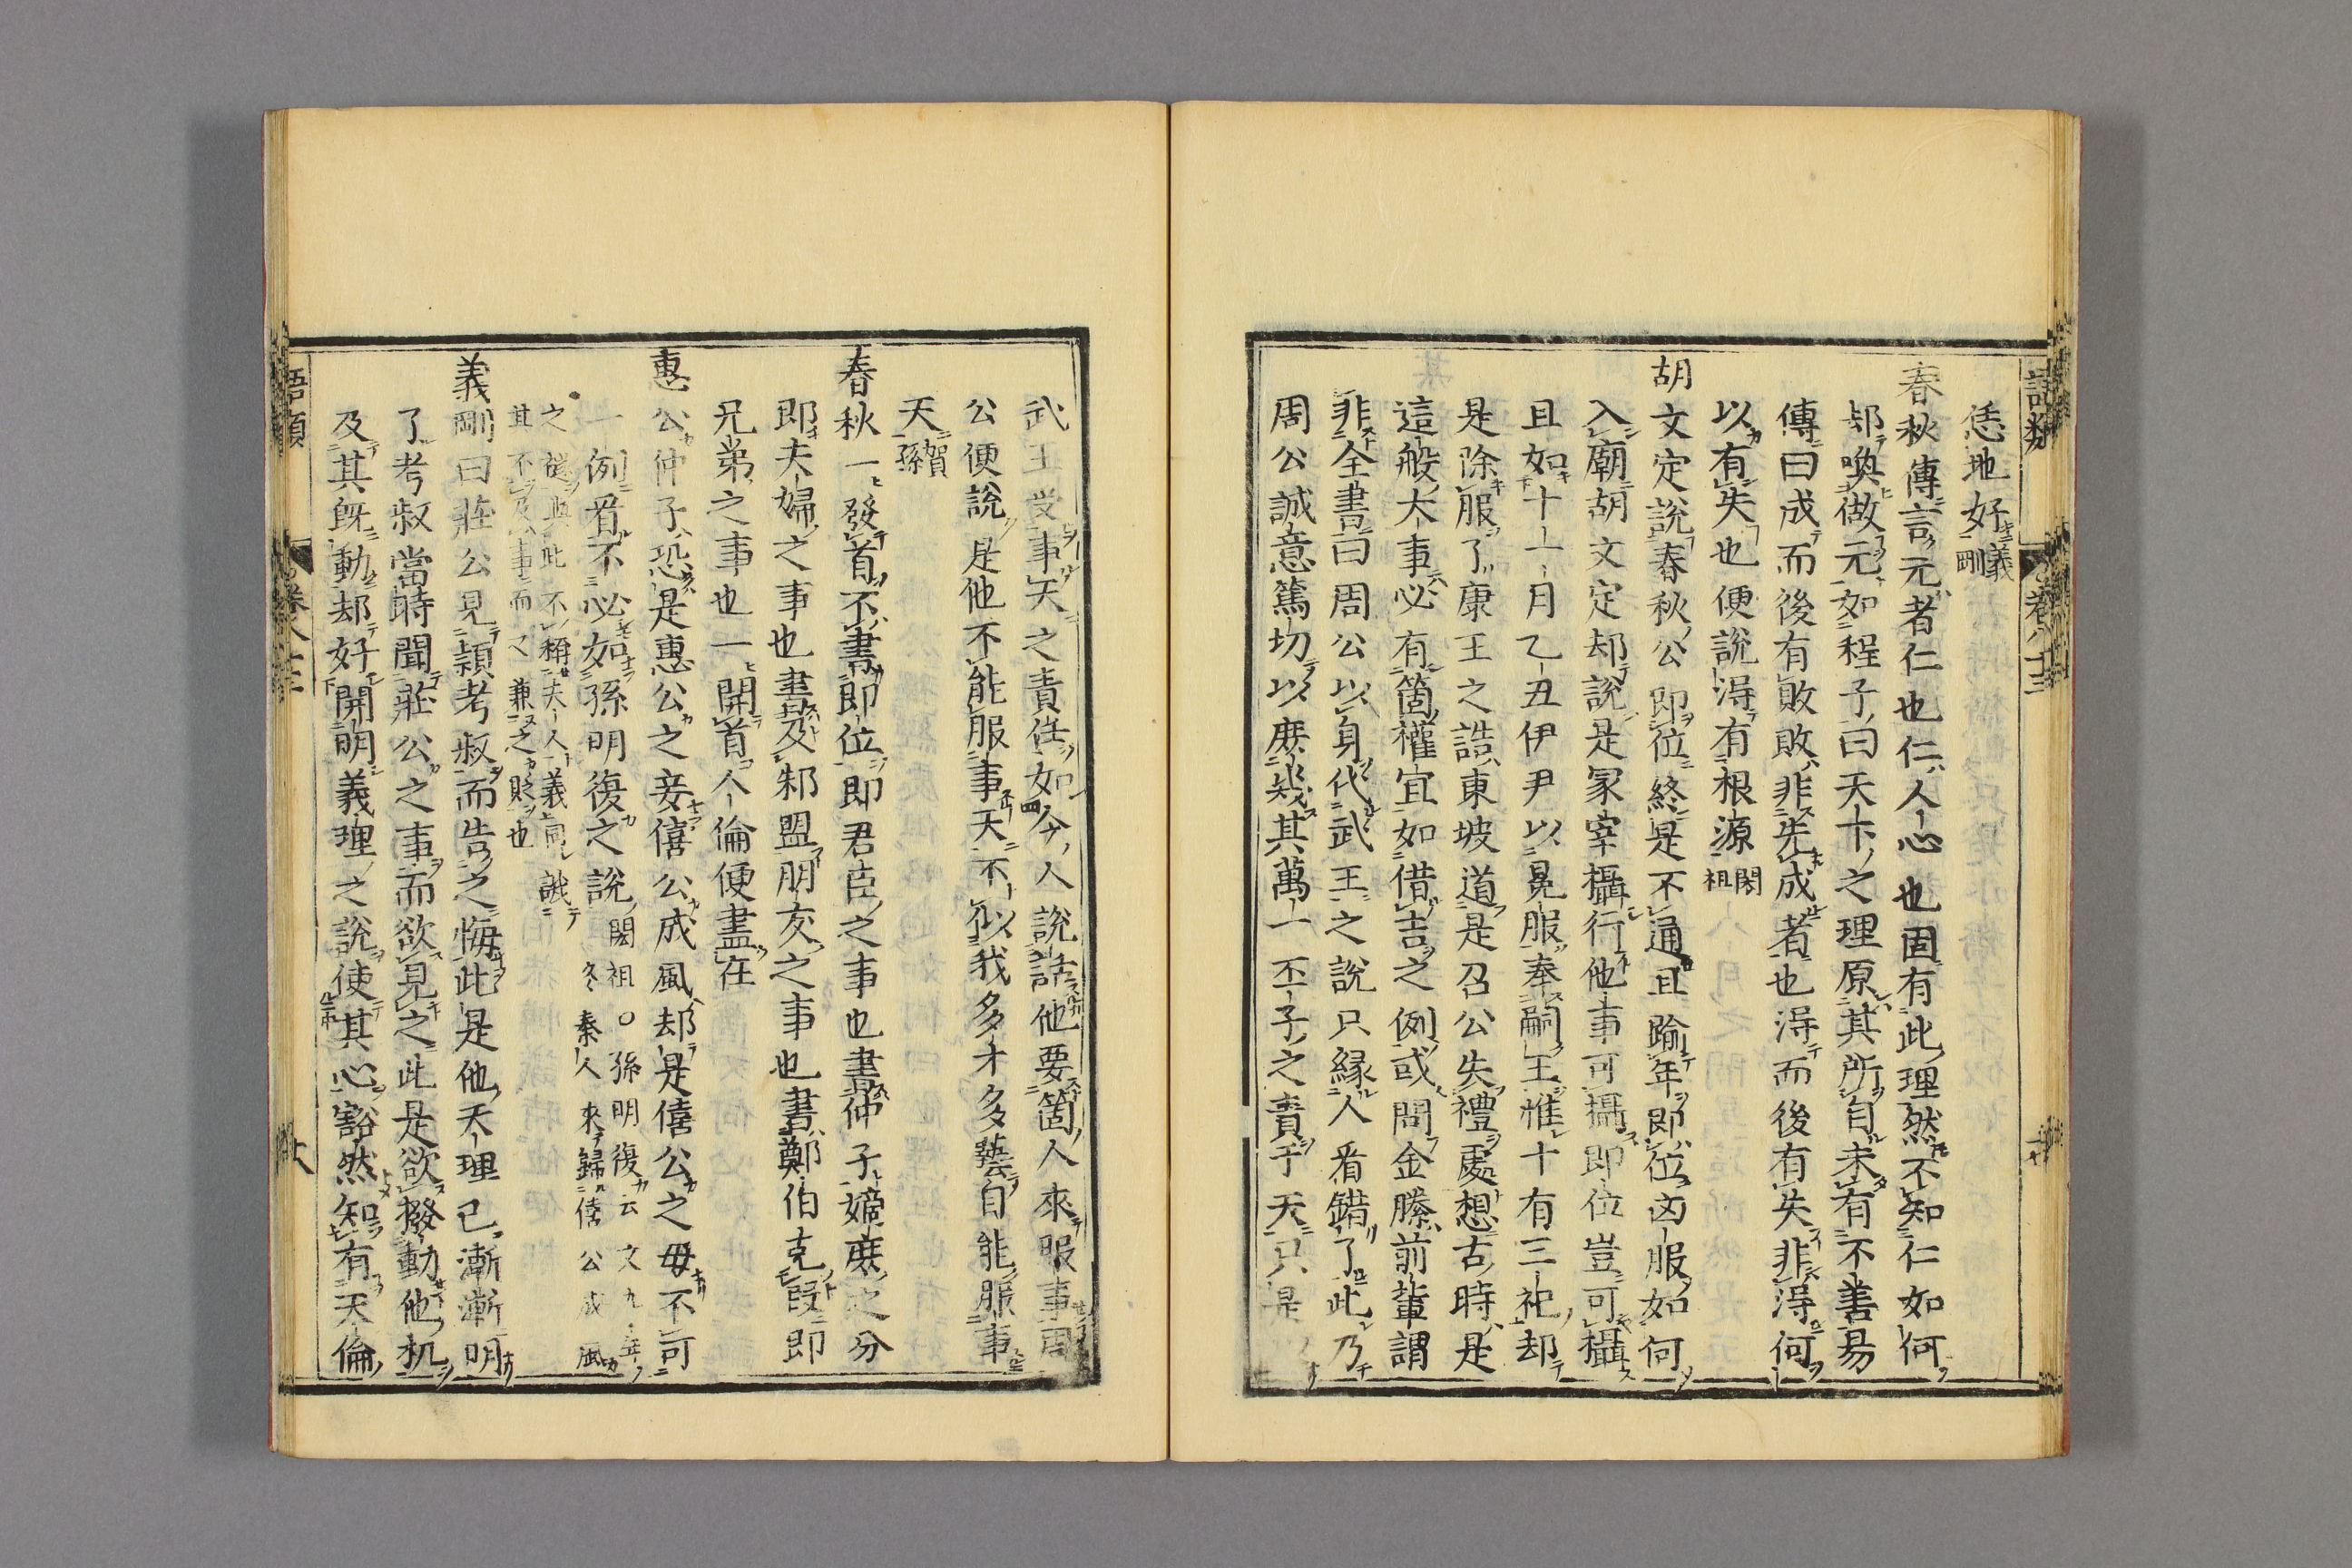 語類
卷八十三
恁地好義剛
春秋傳言元者仁也仁人心也固有此理然不知仁如何
却喚做元如程子曰天下之理原其所自未有不善易
傳曰成而後有敗敗非先成者也得而後有失非得何
以有失也便說得有根源閎祖
胡文定說春秋公即位終是不通且踰年即位凶服如何
入廟胡文定却說是冢宰攝行他事可攝即位豈可攝
且如十一月乙丑伊尹以冕服奉嗣王惟十有三祀却
是除服了康王之誥東坡道是召公失禮處想古時是
這般大事必有箇權宜如借吉之例或問金縢前輩謂
非全書曰周公以身代武王之說只緣人看錯了此乃
周公誠意篤切以庶幾其萬一丕子之責于天只是以
武王受事天之責任如今人說話他要箇人來服事周
公便說是他不能服事天不似我多才多藝自能服事
天賀孫
春秋一發首不書即位即君臣之事也書仲子嫡庶之分
即夫婦之事也書及邾盟朋友之事也書鄭伯克段即
兄弟之事也一開首人倫便盡在
惠公仲子恐是惠公之妾僖公成風却是僖公之母不可
一例看不必如孫明復之說閎祖○孫明復云文九年冬秦人來歸僖公成風
之襚與此不稱夫人義同譏其不及事而又兼之貶也
義剛曰莊公見潁考叔而告之悔此是他天理已漸漸明
了考叔當時聞莊公之事而欲見之此是欲撥動他机
及其旣動却好開明義理之說使其心豁然知有天倫
語類
卷八十三